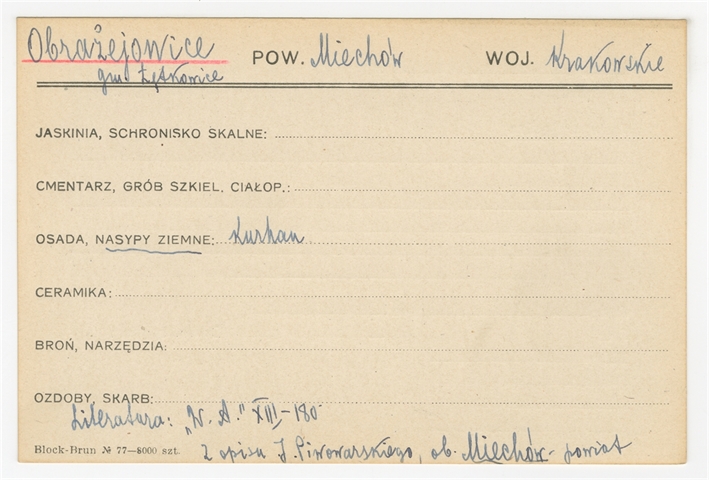 Obrażejowice POW. Miechów WOJ. Krakowskie
gm. Łętkowice
JASKINIA, SCHRONISKO SKALNE:
CMENTARZ, GRÓB SZKIEL. CIAŁOP.:
OSADA, NASYPY ZIEMNE: Kurhan
CERAMIKA:
BROŃ, NARZĘDZIA:
OZDOBY, SKARB:
Literatura: „W. A." XIII-180
Block-Brun № 77—8000 szt. Z opisu J. Piwowarskiego, ob. Miechów - powiat